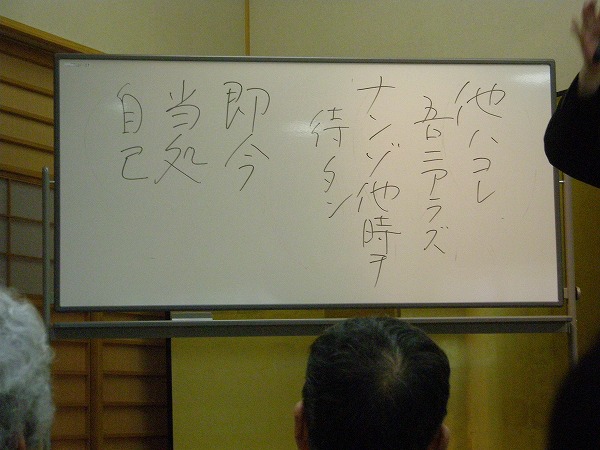 他ハコレ
吾ニアラズ
ナンゾ他時ヲ
待タン
即今
当処
自己